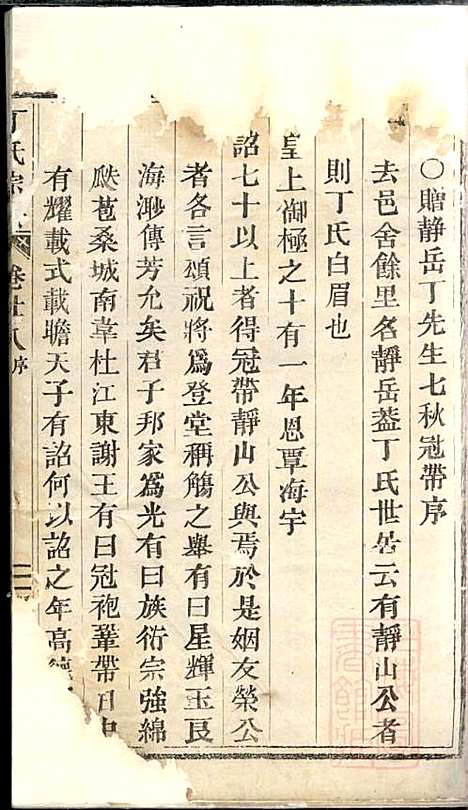 ○贈靜岳丁先生七秋冠帶序
去邑舍餘里名靜岳葢丁氏世居云有靜山公者
則丁氏白眉也
皇上御極之十有一年恩覃海宇
詔七十以上者得冠帶靜山公與焉於是姻友榮公
者各言頌祝將爲登堂稱觴之舉有曰星輝玉艮
海渺傳芳允矣君子邦家爲光有曰族衍宗強綿
瓞苞桑城南韋杜江東謝王有曰冠袍鞶帶日中
有耀載式載瞻天子有詔何以詔之年高德
丁氏宗 卷廿八 序